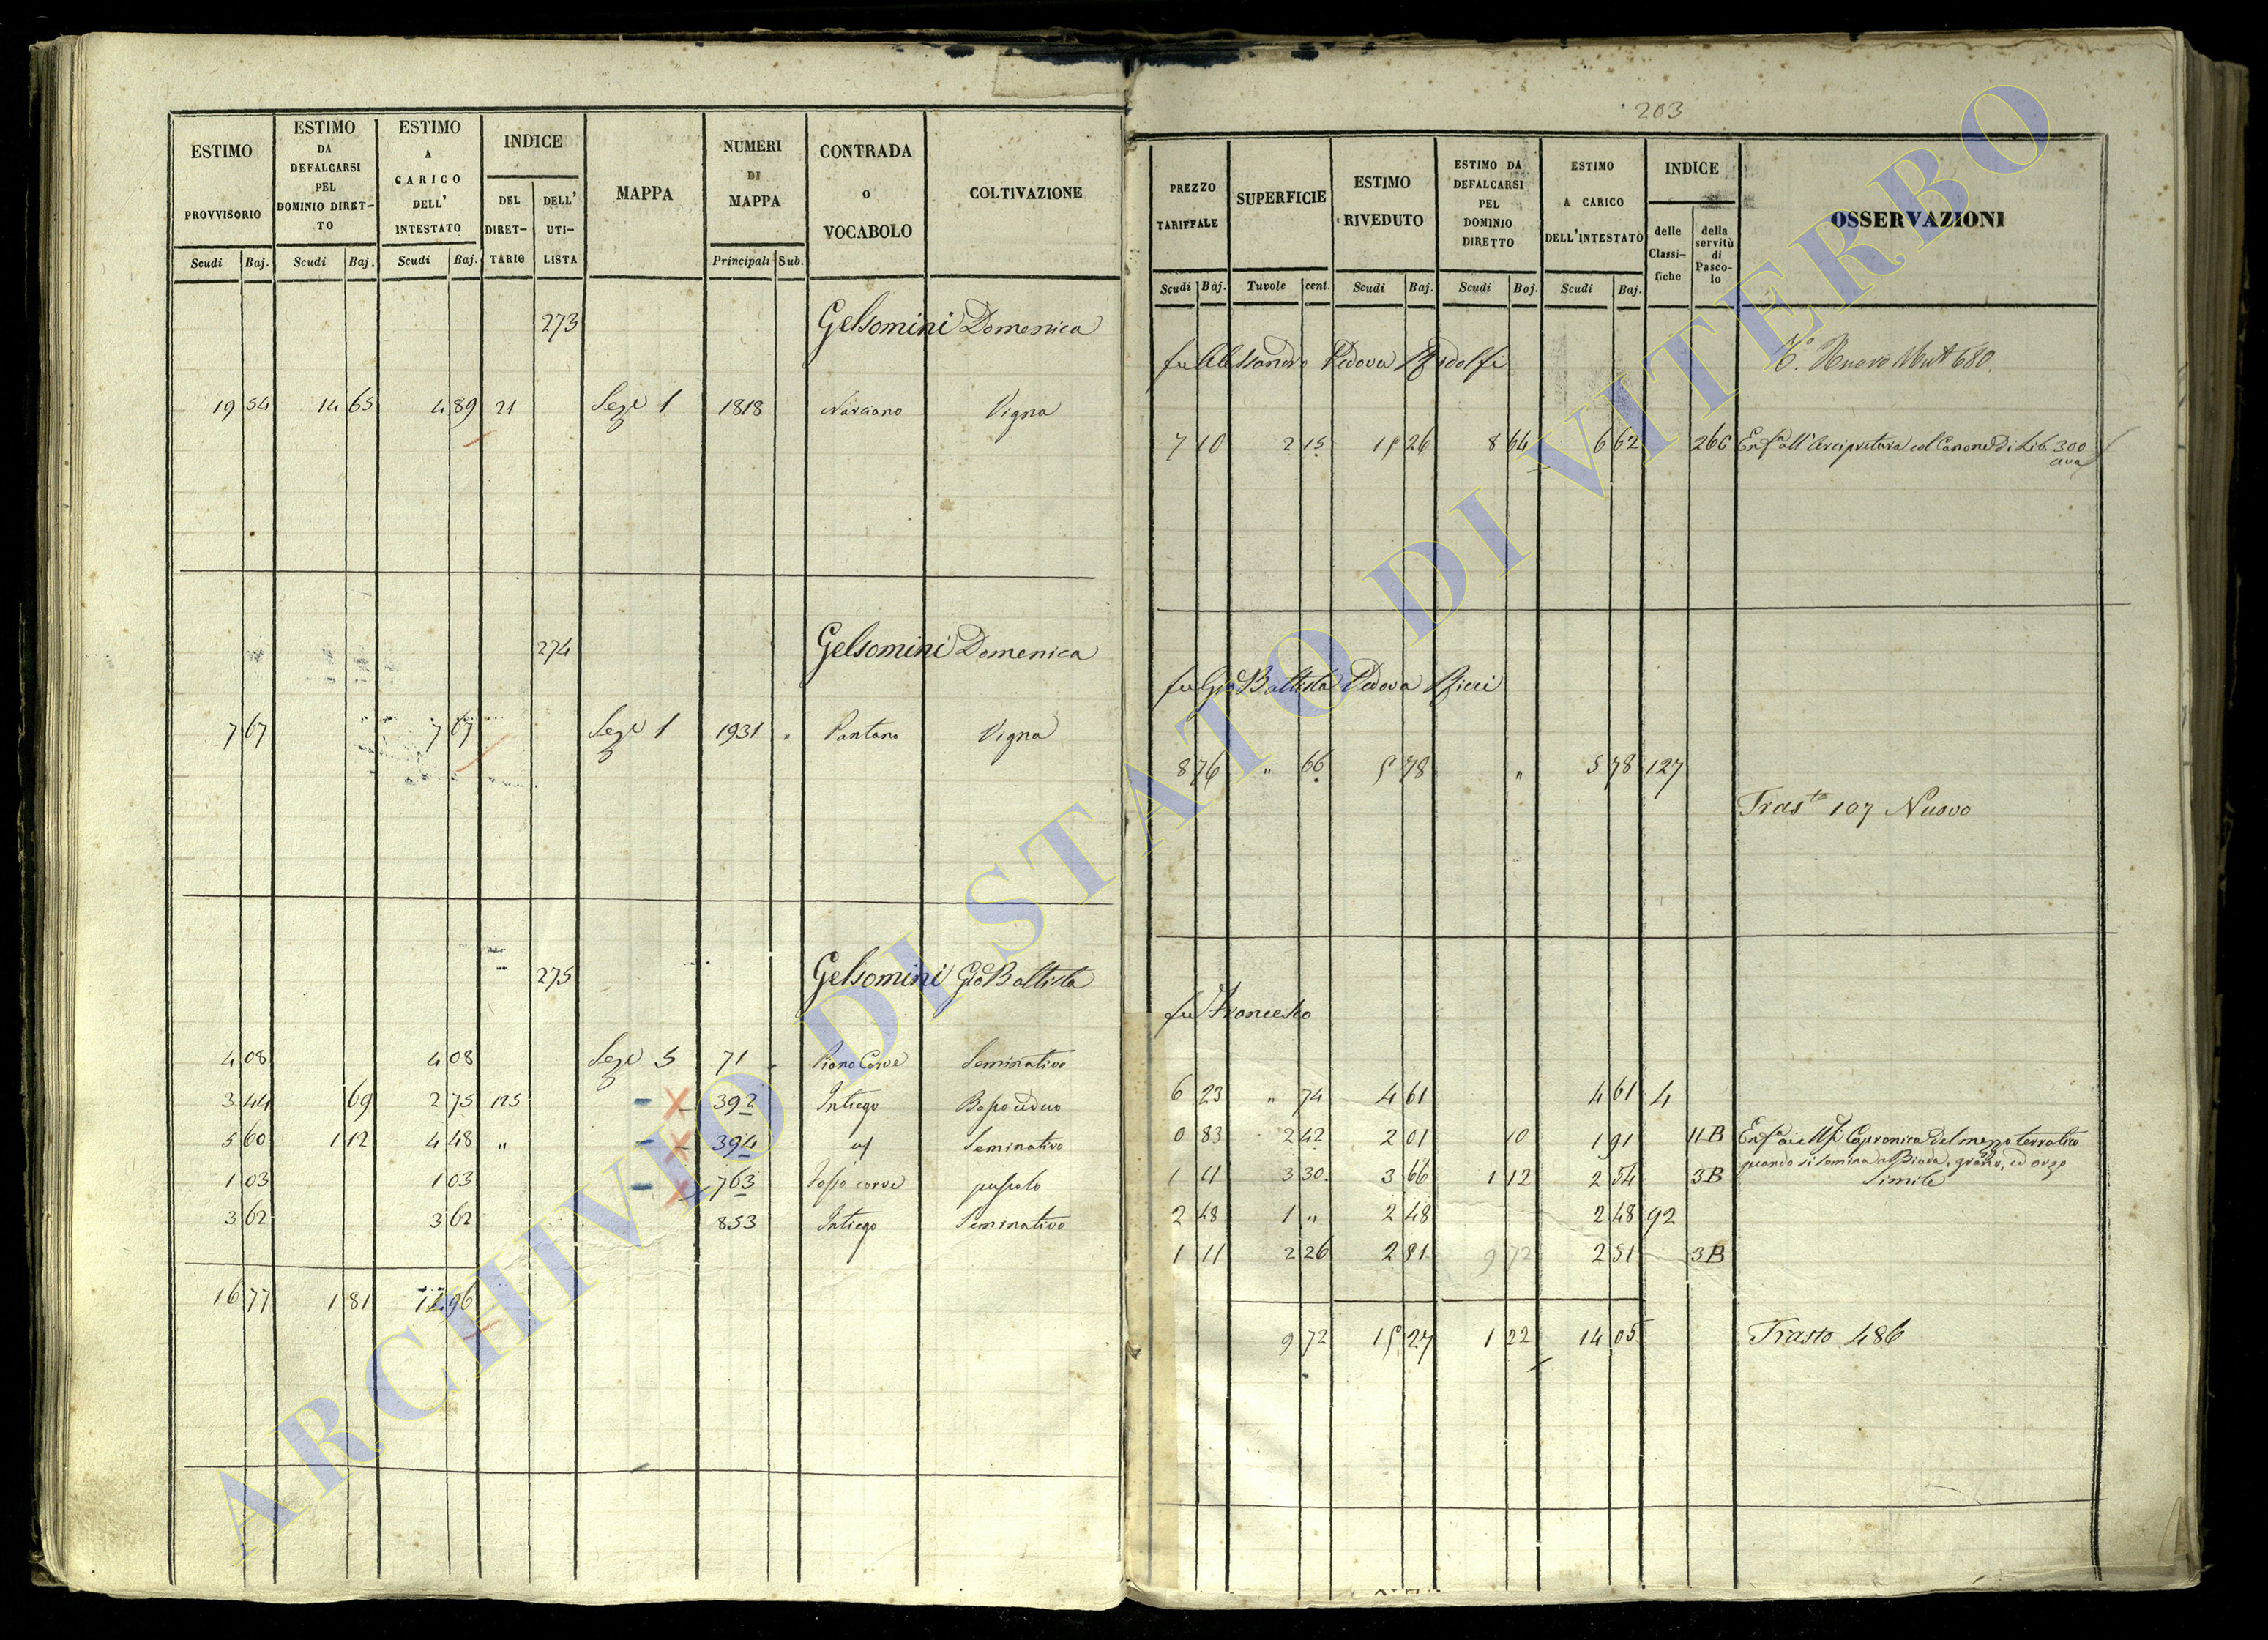 203
ESTIMO PROVVISORIO Scudi Baj.
ESTIMO DA DEFALCARSI PEL DOMINIO DIRET-TO Scudi Baj.
ESTIMO A CARICO DELL' INTESTATO Scudi Baj.
INDICE DEL DIRET-TARIO DELL' UTI-LISTA
MAPPA
NUMERI DI MAPPA Principali Sub.
CONTRADA O VOCABOLO
COLTIVAZIONE
PREZZO TARIFFALE Scudi Baj.
SUPERFICIE Tavole cent.
ESTIMO RIVEDUTO Scudi Baj.
ESTIMO DA DEFALCARSI PEL DOMINIO DIRETTO Scudi Baj.
ESTIMO A CARICO DELL'INTESTATO Scudi Baj.
INDICE delle Classi-fiche della servitù di Pasco-lo
OSSERVAZIONI
273 Gelsomini Domenica
fu Alessandro Vedova Ridolfi
Nuovo 680.
19 54 14 65 4 89 21 Sez 1 1818 Vigna
7 10 2 15 15 26 8 64 6 62 26C Enfa all'Arcipretura col Canone di Lib. 300
274 Gelsomini Domenica
fu Gio Battista Vedova
7 67 7 67 Sez 1 1931 Pantano Vigna
8 76 " 66 5 78 " 5 78 127
Trasto 107 Nuovo
275 Gelsomini Gio Battista
fu Francesco
4 08 4 08 Sez 5 71 Piano Seminativo
3 44 69 2 75 125 392 Intiego Bosco ceduo
5 60 1 12 4 48 " 394 Seminativo
1 03 1 03 763 pascolo
3 62 3 62 853 Intiego Seminativo
16 77 1 81 96
6 23 " 74 4 61 4 61 4
0 83 2 42 2 01 10 1 91 11B Enfa Capranica del mezzo terratico
quando si semina a Biada, grano, ed orzo
1 11 3 30 3 66 1 12 2 54 3B Simile
2 48 1 " 2 48 2 48 92
1 11 2 26 2 51 9 72 2 51 3B
9 72 15 27 1 22 14 05 Trasto 486
ARCHIVIO DI STATO DI VITERBO